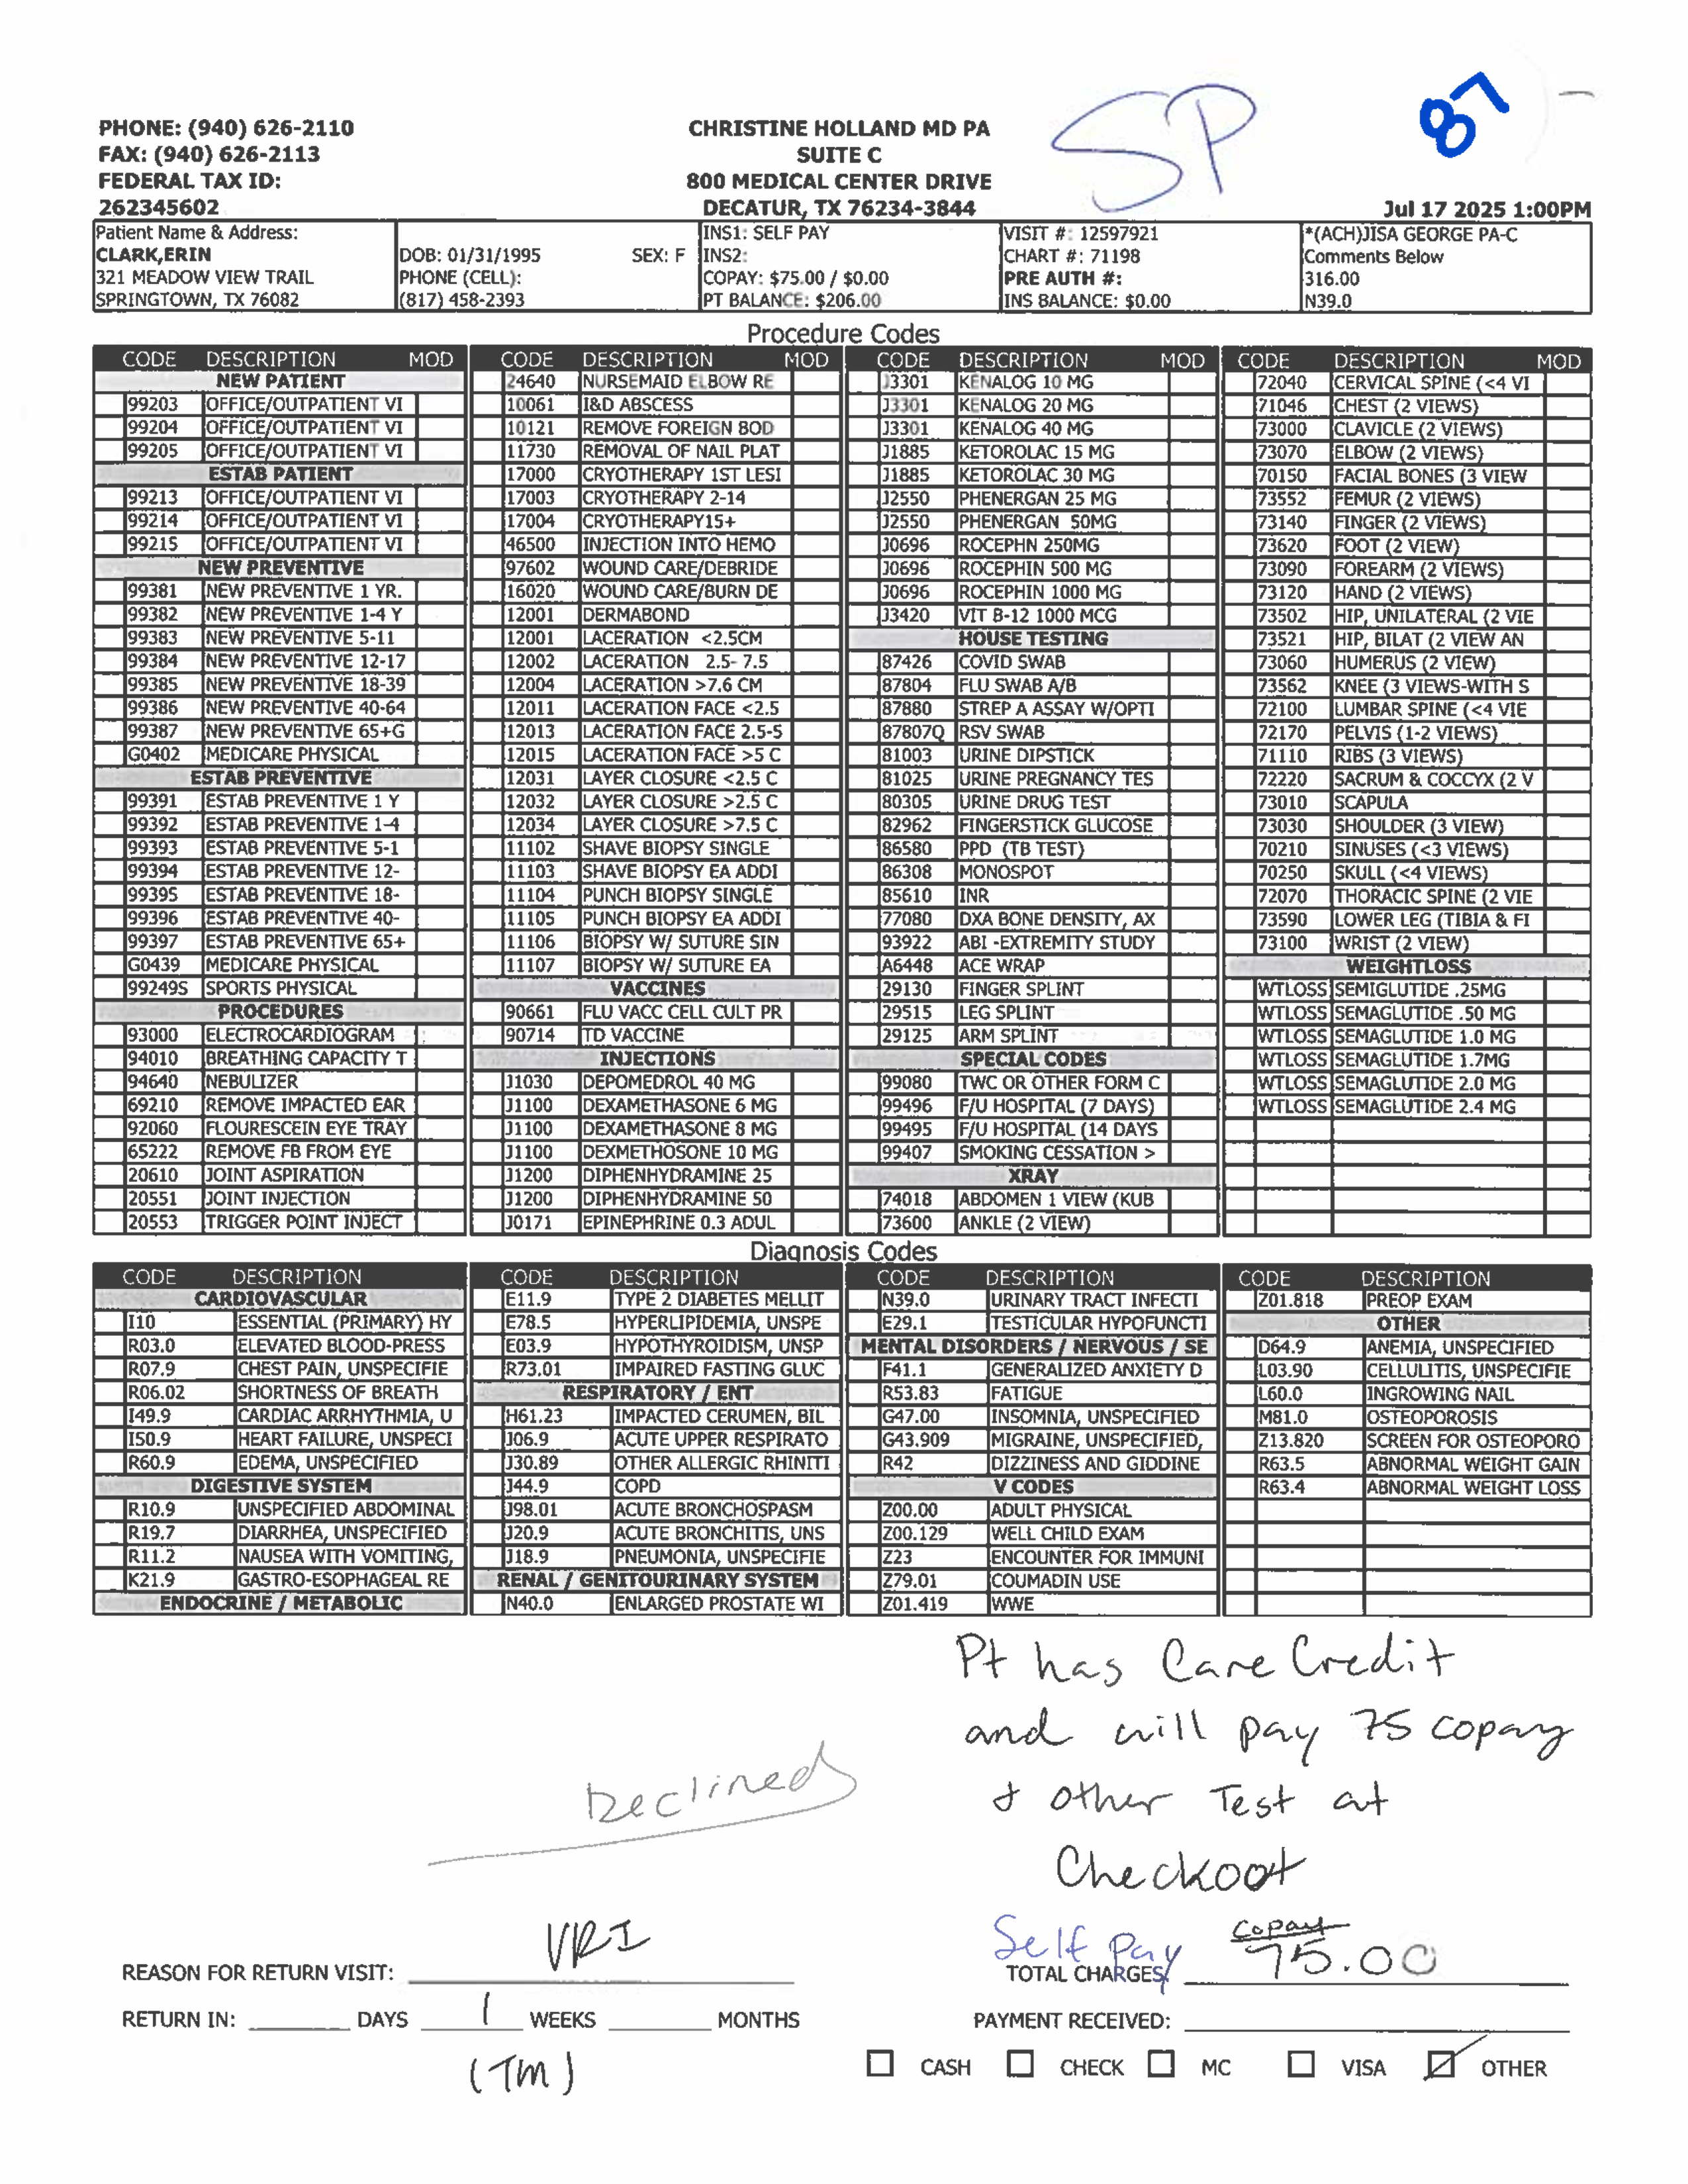 SP
87
PHONE: (940) 626-2110
FAX: (940) 626-2113
FEDERAL TAX ID:
262345602
CHRISTINE HOLLAND MD PA
SUITE C
800 MEDICAL CENTER DRIVE
DECATUR, TX 76234-3844
Jul 17 2025 1:00PM
Patient Name & Address:
CLARK,ERIN
321 MEADOW VIEW TRAIL
SPRINGTOWN, TX 76082
DOB: 01/31/1995 SEX: F
PHONE (CELL):
(817) 458-2393
INS1: SELF PAY
INS2:
COPAY: $75.00 / $0.00
PT BALANCE: $206.00
VISIT #: 12597921
CHART #: 71198
PRE AUTH #:
INS BALANCE: $0.00
*(ACH)JISA GEORGE PA-C
Comments Below
316.00
N39.0
Procedure Codes
CODE DESCRIPTION MOD
NEW PATIENT
99203 OFFICE/OUTPATIENT VI
99204 OFFICE/OUTPATIENT VI
99205 OFFICE/OUTPATIENT VI
ESTAB PATIENT
99213 OFFICE/OUTPATIENT VI
99214 OFFICE/OUTPATIENT VI
99215 OFFICE/OUTPATIENT VI
NEW PREVENTIVE
99381 NEW PREVENTIVE 1 YR.
99382 NEW PREVENTIVE 1-4 Y
99383 NEW PREVENTIVE 5-11
99384 NEW PREVENTIVE 12-17
99385 NEW PREVENTIVE 18-39
99386 NEW PREVENTIVE 40-64
99387 NEW PREVENTIVE 65+G
G0402 MEDICARE PHYSICAL
ESTAB PREVENTIVE
99391 ESTAB PREVENTIVE 1 Y
99392 ESTAB PREVENTIVE 1-4
99393 ESTAB PREVENTIVE 5-1
99394 ESTAB PREVENTIVE 12-
99395 ESTAB PREVENTIVE 18-
99396 ESTAB PREVENTIVE 40-
99397 ESTAB PREVENTIVE 65+
G0439 MEDICARE PHYSICAL
99249S SPORTS PHYSICAL
PROCEDURES
93000 ELECTROCARDIOGRAM
94010 BREATHING CAPACITY T
94640 NEBULIZER
69210 REMOVE IMPACTED EAR
92060 FLOURESCEIN EYE TRAY
65222 REMOVE FB FROM EYE
20610 JOINT ASPIRATION
20551 JOINT INJECTION
20553 TRIGGER POINT INJECT
CODE DESCRIPTION MOD
24640 NURSEMAID ELBOW RE
10061 I&D ABSCESS
10121 REMOVE FOREIGN BOD
11730 REMOVAL OF NAIL PLAT
17000 CRYOTHERAPY 1ST LESI
17003 CRYOTHERAPY 2-14
17004 CRYOTHERAPY15+
46500 INJECTION INTO HEMO
97602 WOUND CARE/DEBRIDE
16020 WOUND CARE/BURN DE
12001 DERMABOND
12001 LACERATION <2.5CM
12002 LACERATION 2.5- 7.5
12004 LACERATION >7.6 CM
12011 LACERATION FACE <2.5
12013 LACERATION FACE 2.5-5
12015 LACERATION FACE >5 C
12031 LAYER CLOSURE <2.5 C
12032 LAYER CLOSURE >2.5 C
12034 LAYER CLOSURE >7.5 C
11102 SHAVE BIOPSY SINGLE
11103 SHAVE BIOPSY EA ADDI
11104 PUNCH BIOPSY SINGLE
11105 PUNCH BIOPSY EA ADDI
11106 BIOPSY W/ SUTURE SIN
11107 BIOPSY W/ SUTURE EA
VACCINES
90661 FLU VACC CELL CULT PR
90714 TD VACCINE
INJECTIONS
J1030 DEPOMEDROL 40 MG
J1100 DEXAMETHASONE 6 MG
J1100 DEXAMETHASONE 8 MG
J1100 DEXMETHOSONE 10 MG
J1200 DIPHENHYDRAMINE 25
J1200 DIPHENHYDRAMINE 50
J0171 EPINEPHRINE 0.3 ADUL
CODE DESCRIPTION MOD
J3301 KENALOG 10 MG
J3301 KENALOG 20 MG
J3301 KENALOG 40 MG
J1885 KETOROLAC 15 MG
J1885 KETOROLAC 30 MG
J2550 PHENERGAN 25 MG
J2550 PHENERGAN 50MG
J0696 ROCEPHN 250MG
J0696 ROCEPHIN 500 MG
J0696 ROCEPHIN 1000 MG
J3420 VIT B-12 1000 MCG
HOUSE TESTING
87426 COVID SWAB
87804 FLU SWAB A/B
87880 STREP A ASSAY W/OPTI
87807Q RSV SWAB
81003 URINE DIPSTICK
81025 URINE PREGNANCY TES
80305 URINE DRUG TEST
82962 FINGERSTICK GLUCOSE
86580 PPD (TB TEST)
86308 MONOSPOT
85610 INR
77080 DXA BONE DENSITY, AX
93922 ABI -EXTREMITY STUDY
A6448 ACE WRAP
29130 FINGER SPLINT
29515 LEG SPLINT
29125 ARM SPLINT
SPECIAL CODES
99080 TWC OR OTHER FORM C
99496 F/U HOSPITAL (7 DAYS)
99495 F/U HOSPITAL (14 DAYS
99407 SMOKING CESSATION >
XRAY
74018 ABDOMEN 1 VIEW (KUB
73600 ANKLE (2 VIEW)
CODE DESCRIPTION MOD
72040 CERVICAL SPINE (<4 VI
71046 CHEST (2 VIEWS)
73000 CLAVICLE (2 VIEWS)
73070 ELBOW (2 VIEWS)
70150 FACIAL BONES (3 VIEW
73552 FEMUR (2 VIEWS)
73140 FINGER (2 VIEWS)
73620 FOOT (2 VIEW)
73090 FOREARM (2 VIEWS)
73120 HAND (2 VIEWS)
73502 HIP, UNILATERAL (2 VIE
73521 HIP, BILAT (2 VIEW AN
73060 HUMERUS (2 VIEW)
73562 KNEE (3 VIEWS-WITH S
72100 LUMBAR SPINE (<4 VIE
72170 PELVIS (1-2 VIEWS)
71110 RIBS (3 VIEWS)
72220 SACRUM & COCCYX (2 V
73010 SCAPULA
73030 SHOULDER (3 VIEW)
70210 SINUSES (<3 VIEWS)
70250 SKULL (<4 VIEWS)
72070 THORACIC SPINE (2 VIE
73590 LOWER LEG (TIBIA & FI
73100 WRIST (2 VIEW)
WEIGHTLOSS
WTLOSS SEMIGLUTIDE .25MG
WTLOSS SEMAGLUTIDE .50 MG
WTLOSS SEMAGLUTIDE 1.0 MG
WTLOSS SEMAGLUTIDE 1.7MG
WTLOSS SEMAGLUTIDE 2.0 MG
WTLOSS SEMAGLUTIDE 2.4 MG
Diagnosis Codes
CODE DESCRIPTION
CARDIOVASCULAR
I10 ESSENTIAL (PRIMARY) HY
R03.0 ELEVATED BLOOD-PRESS
R07.9 CHEST PAIN, UNSPECIFIE
R06.02 SHORTNESS OF BREATH
I49.9 CARDIAC ARRHYTHMIA, U
I50.9 HEART FAILURE, UNSPECI
R60.9 EDEMA, UNSPECIFIED
DIGESTIVE SYSTEM
R10.9 UNSPECIFIED ABDOMINAL
R19.7 DIARRHEA, UNSPECIFIED
R11.2 NAUSEA WITH VOMITING,
K21.9 GASTRO-ESOPHAGEAL RE
ENDOCRINE / METABOLIC
CODE DESCRIPTION
E11.9 TYPE 2 DIABETES MELLIT
E78.5 HYPERLIPIDEMIA, UNSPE
E03.9 HYPOTHYROIDISM, UNSP
R73.01 IMPAIRED FASTING GLUC
RESPIRATORY / ENT
H61.23 IMPACTED CERUMEN, BIL
J06.9 ACUTE UPPER RESPIRATO
J30.89 OTHER ALLERGIC RHINITI
J44.9 COPD
J98.01 ACUTE BRONCHOSPASM
J20.9 ACUTE BRONCHITIS, UNS
J18.9 PNEUMONIA, UNSPECIFIE
RENAL / GENITOURINARY SYSTEM
N40.0 ENLARGED PROSTATE WI
CODE DESCRIPTION
N39.0 URINARY TRACT INFECTI
E29.1 TESTICULAR HYPOFUNCTI
MENTAL DISORDERS / NERVOUS / SE
F41.1 GENERALIZED ANXIETY D
R53.83 FATIGUE
G47.00 INSOMNIA, UNSPECIFIED
G43.909 MIGRAINE, UNSPECIFIED,
R42 DIZZINESS AND GIDDINE
V CODES
Z00.00 ADULT PHYSICAL
Z00.129 WELL CHILD EXAM
Z23 ENCOUNTER FOR IMMUNI
Z79.01 COUMADIN USE
Z01.419 WWE
CODE DESCRIPTION
Z01.818 PREOP EXAM
OTHER
D64.9 ANEMIA, UNSPECIFIED
L03.90 CELLULITIS, UNSPECIFIE
L60.0 INGROWING NAIL
M81.0 OSTEOPOROSIS
Z13.820 SCREEN FOR OSTEOPORO
R63.5 ABNORMAL WEIGHT GAIN
R63.4 ABNORMAL WEIGHT LOSS
Pt has Care Credit
and will pay 75 copay
& other Test at
Checkoot
Declined
REASON FOR RETURN VISIT: VRI
RETURN IN: DAYS 1 WEEKS MONTHS
(TM)
Self Pay copay
TOTAL CHARGES: 75.00
PAYMENT RECEIVED:
CASH CHECK MC VISA OTHER